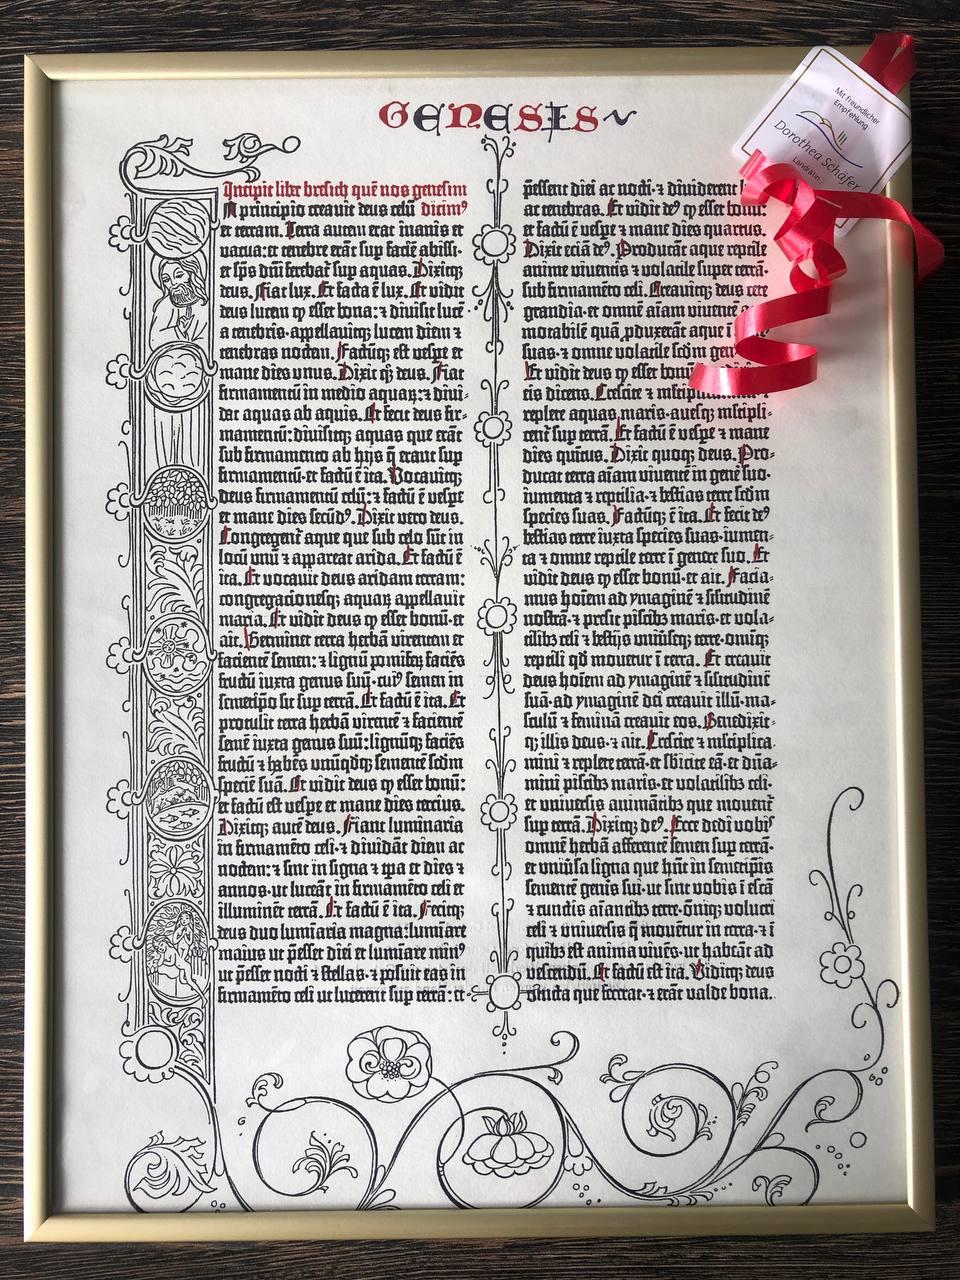 GENESIS
Mit freundlicher
Empfehlung
Dorothea Schäfer
Landrätin
Incipit liber bresich quē nos genesim
In principio creavit deus celū dicimꝰ
et terram. Terra autem erat inanis et
vacua: et tenebre erāt sup faciē abissi:
et sp̄s dn̄i ferebat̄ sup aquas. Dixitqꝫ
deus. Fiat lux. Et facta ē lux. Et vidit
deus lucem ꝙ esset bona: ⁊ divisit lucē
a tenebris. appellavitqꝫ lucem diem ⁊
tenebras noctem. Factūqꝫ est vesꝑe et
mane dies unus. Dixit qꝫ deus. Fiat
firmamentū in medio aquaꝝ: ⁊ divi-
dat aquas ab aquis. Et fecit deus fir-
mamentū: divisitqꝫ aquas que erāt
sub firmamento ab hijs q̄ erant sup
firmamentū. et factū ē ita. Vocavitqꝫ
deus firmamentū celū: ⁊ factū ē vesꝑe
et mane dies secūdꝰ. Dixit vero deus.
Congregent̄ aque que sub celo sūt in
locū unū ⁊ appareat arida. Et factū ē
ita. Et vocavit deus aridam terram:
congregacionesqꝫ aquaꝝ appellavit
maria. Et vidit deus ꝙ esset bonū. et
ait. Germinet terra herbā virentem et
facientē semen: ⁊ lignū pomifeꝝ faciēs
fructū iuxta genus suū. cuiꝰ semen in
semetipo sit sup terrā. Et factū ē ita. Et
protulit terra herbā virentē ⁊ facientē
semē iuxta genus suū: lignūqꝫ faciēs
fructū ⁊ habēs unūqꝺqꝫ sementē scd̄m
speciē suā. Et vidit deus ꝙ esset bonū:
et factū est vesꝑe et mane dies tercius.
Dixitqꝫ autē deus. Fiant luminaria
in firmamēto celi. ⁊ dividāt diem ac
noctem: ⁊ sint in signa ⁊ tp̄a et dies ⁊
annos. ut luceāt in firmamēto celi et
illuminēt terrā. Et factū ē ita. Fecitqꝫ
deus duo lumīaria magna: lumīare
maius ut p̄esset diei et lumīare minꝰ
ut p̄esset nocti ⁊ stellas. ⁊ posuit eas in
firmamēto celi ut lucerent sup terrā: et
p̄essent diei ac nocti. ⁊ dividerent
ac tenebras. Et vidit deꝰ ꝙ esset bonū:
et factū ē vesꝑe ⁊ mane dies quartus.
Dixit eciā deꝰ. Producāt aque reptile
anime viventis ⁊ volatile super terrā.
sub firmamēto celi. Creavitqꝫ deus cete
grandia. et omnē aīam viventē
motabilē quā ꝓduxerāt aque ī
suas. ⁊ omne volatile scd̄m gen
Et vidit deus ꝙ esset bonū
eis dicens. Crescite ⁊ mltipli
replete aquas maris. avesqꝫ mltipli-
cent̄ sup terrā. Et factū ē vesꝑe ⁊ mane
dies quītus. Dixit quoqꝫ deus. Pro-
ducat terra aīam viventē in genē suo.
iumenta ⁊ reptilia. ⁊ bestias terre scd̄m
species suas. Factūqꝫ ē ita. Et fecit deꝰ
bestias terre iuxta species suas. iumen-
ta ⁊ omne reptile terre ī genere suo. Et
vidit deus ꝙ esset bonū. et ait. Facia-
mus hoīem ad ymaginē ⁊ sīlitudinē
nostrā. ⁊ presit piscibꝫ maris. et vola-
tilibꝫ celi ⁊ bestijs univīscqꝫ terre. omniqꝫ
reptili qd̄ movetur ī terra. Et creavit
deus hoīem ad ymaginē ⁊ sīlitudinē
suā. ad ymaginē dei creavit illū. ma-
sculū ⁊ feminā creavit eos. Benedixit-
qꝫ illis deus. ⁊ ait. Crescite ⁊ mltiplica
mini ⁊ replete terrā. et sbicite eā. et dn̄a-
mini piscibꝫ maris. et volatilibꝫ celi.
et universis animātibꝫ que movent̄
sup terrā. Dixitqꝫ deꝰ. Ecce dedi vobis
omnē herbā afferentē semen sup terrā.
et univ̄sa ligna que hn̄t in semetipīs
sementē genīs sui. ut sint vobis ī escā
⁊ cunctis aīantibꝫ terre. om̄iqꝫ volucri
celi ⁊ universis q̄ movētur in terra. ⁊ ī
quibꝫ est anima vivēs. ut habeāt ad
vescendū. Et factū est ita. Viditqꝫ deus
cuncta que fecerat. ⁊ erāt valde bona.